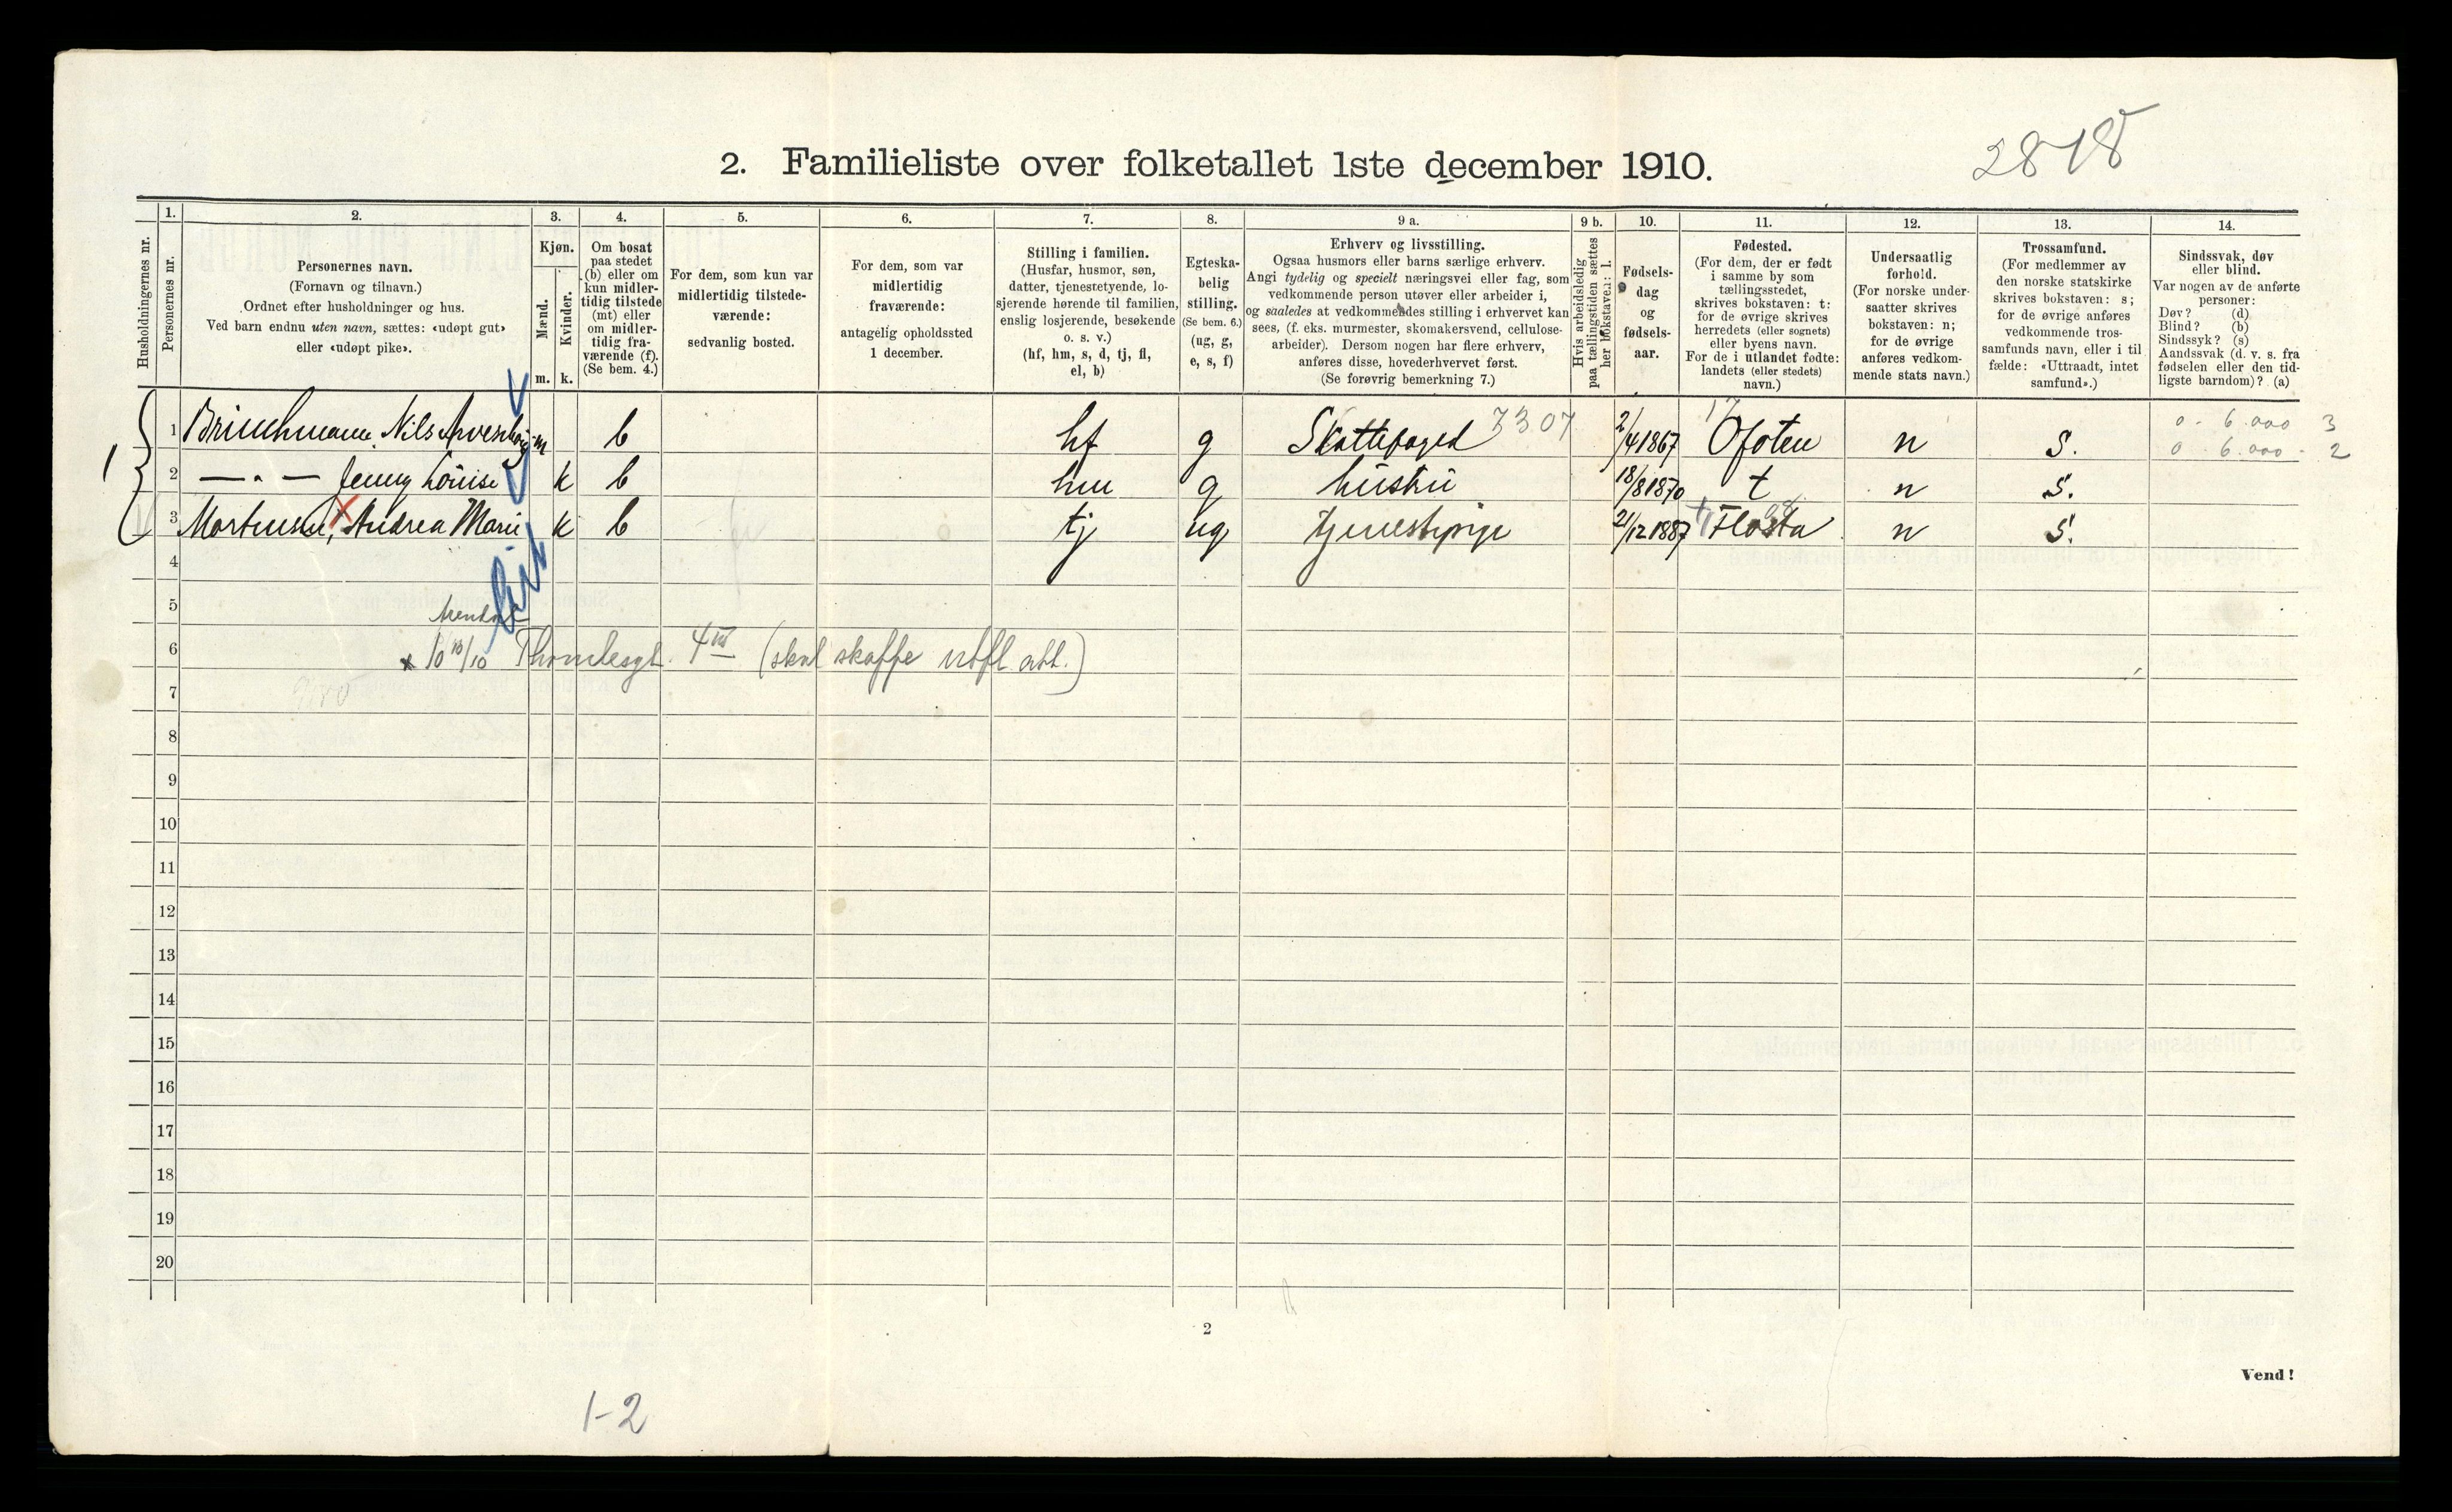 2818
2. Familieliste over folketallet 1ste december 1910.
Husholdningernes nr.
1. Personernes nr.
2. Personernes navn. (Fornavn og tilnavn.) Ordnet efter husholdninger og hus. Ved barn endnu uten navn, sættes: «udøpt gut» eller «udøpt pike».
3. Kjøn. Mænd. m. Kvinder. k.
4. Om bosat paa stedet (b) eller om kun midler-tidig tilstede (mt) eller om midler-tidig fra-værende (f). (Se bem. 4.)
5. For dem, som kun var midlertidig tilstede-værende: sedvanlig bosted.
6. For dem, som var midlertidig fraværende: antagelig opholdssted 1 december.
7. Stilling i familien. (Husfar, husmor, søn, datter, tjenestetyende, lo-sjerende hørende til familien, enslig losjerende, besøkende o. s. v.) (hf, hm, s, d, tj, fl, el, b)
8. Egteska-belig stilling. (Se bem. 6.) (ug, g, e, s, f)
9 a. Erhverv og livsstilling. Ogsaa husmors eller barns særlige erhverv. Angi tydelig og specielt næringsvei eller fag, som vedkommende person utøver eller arbeider i, og saaledes at vedkommendes stilling i erhvervet kan sees, (f. eks. murmester, skomakersvend, cellulose-arbeider). Dersom nogen har flere erhverv, anføres disse, hovederhvervet først. (Se forøvrig bemerkning 7.)
9 b. Hvis arbeidsledig paa tællingstiden sættes her bokstaven: l.
10. Fødsels-dag og fødsels-aar.
11. Fødested. (For dem, der er født i samme by som tællingsstedet, skrives bokstaven: t: for de øvrige skrives herredets (eller sognets) eller byens navn. For de i utlandet fødte: landets (eller stedets) navn.)
12. Undersaatlig forhold. (For norske under-saatter skrives bokstaven: n; for de øvrige anføres vedkom-mende stats navn.)
13. Trossamfund. (For medlemmer av den norske statskirke skrives bokstaven: s; for de øvrige anføres vedkommende tros-samfunds navn, eller i til fælde: «Uttraadt, intet samfund».)
14. Sindssvak, døv eller blind. Var nogen av de anførte personer: Døv? (d) Blind? (b) Sindssyk? (s) Aandssvak (d. v. s. fra fødselen eller den tid-ligste barndom)? (a)
1 1 Brinchmann, Nils m b hf g Skattefoged 7307 2/4 1867 17 Ofoten n s. 0 - 6.000 3
0 6.000 - 2
2 — " — Jenny Louise k b hm g hustru 18/8 1870 t n s.
3 Martinsen, Andrea Marie k b tj ug tjenestepige 21/12 1887 Flosta n s.
4
5 Arendal
6 x 10 10/10 Thomlesgt. 4 (skal skaffe utfl. att.)
7
8
9
10
11
12
13
14
15
16
17
18
19
20
2
Vend!
1-2